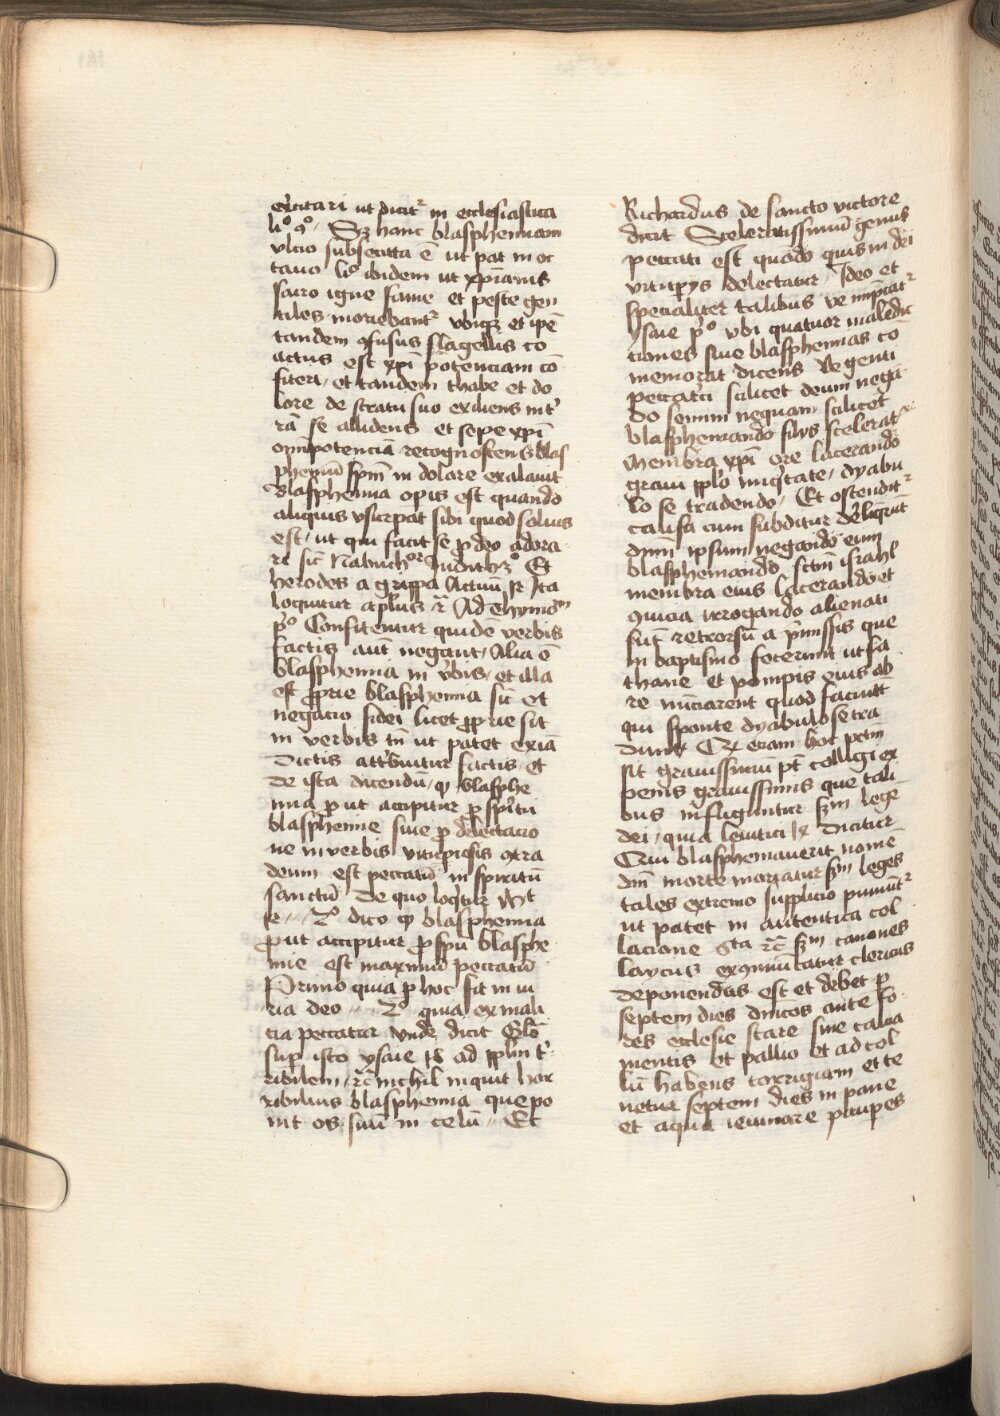 excitari ut dicitr in ecclesiastica
li° 9° Sz hanc blasphemiam
ulcio subsecuta ē ut pat in oc
tauo li° ibidem ut xpianis
sacro igne fame et peste gen
tiles moriebantr ubiqz et ipē
tandem ꝯfusus flagellis co
actus est xpi potenciam cō
fiteri, et tandem thabe et do
lore de stratu suo exiliens int'
rā se allidens et sepe xpi
omīpotenciā recognoscens blas
phemū spm in dolore exalauit
Blasphemia opis est quando
aliquis usurpat sibi quod solius
est, ut qui facit se p deo adora
ri sic Nabuch°r Judith 3° Et
herodes agrippa Actuū Ita
loquitur aplus Ad Thymom
p° Confitentur quidē verbis
factis aūt negant, Alia ē
blasphemia in v'bis, et illa
est prprie blasphemia sic et
negacio fidei licet pprie sit
in verbis tn ut patet exiā
dictis attribuitur factis, et
de ista dicendū, qꝫ blasphe
mia p ut accipitur p spiritu
blasphemie siue p delectacio
ne in verbis vitupiosis ꝯtra
deum est peccatū in spiritū
sanctū De quo loqitur
2° dico qꝫ blasphemia
prout accipitur p spū blasphe
mie est maximū peccatū
Primo quia p hoc fit in iu
ria deo 2° quia ex mali
cia peccatur unde dicit Glō
sup isto ysaie 18 ad pplm t'
ribilem, rc nichil inquit hor
ribilius blasphemia que po
nit os suū in celū Et
Richardus de sancto victore
dicit Sceleratissimū genus
peccati est quādo quis in dei
vitupiis delectatur, Ideo et
specialiter talibus ve imp̄catr
ysaie p° vbi quatuor maledic
tiones siue blasphemias co
memorat dicens Ve genti
peccat'ci scilicet deum nega
do semini nequam scilicet
blasphemando filiis sceleratx
membra xpi ore lacerando
graui pplo iniqitate, dyabu
lo se tradendo, Et ostenditr
causa cum subditur dēliq̄rūt
dnm ipsum negando eum
blasphemando scm israhl
membra eius lacerando et
ꝯuicia irrogando alienati
sūt retrorsū a p'missis que
in baptismo fecerunt ut sa
thane et pompis eius ab
re nūciarent quod faciūt
qui sponte dyabulo se tra
dunt Qꝫ etiam hoc pctm
sit grauissimū pt colligi ex
penis grauissimis que tali
bus infliguntur scdm lege
dei, quia leuitici lx dicitur
Qui blasphemauerit nomē
dni morte moriatur scdm leges
tales extremo supplicio puniūtr
ut patet in autentica col
lacione 6ta rc scdm canones
laycus excoīunicatur clericus
deponendus est et debet p
septem dies dnicos ante fo
res ecclesie stare sine calcia
mentis et pallio et ad col
lū habens corrigiam et te
netur septem dies in pane
et aqua ieiunare paupes